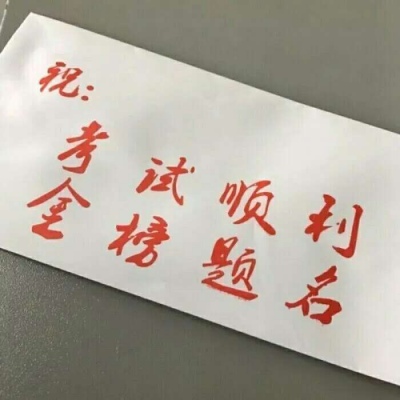 祝：
考试顺利
金榜题名